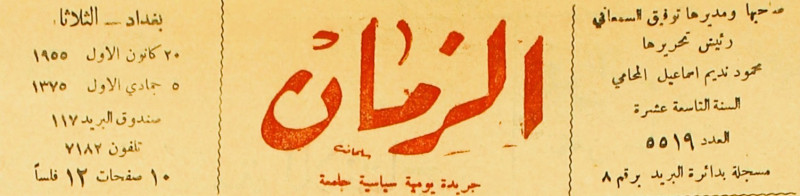 صاحبها ومديرها توفيق السمعاني
رئيس تحريرها
محمود نديم اسماعيل المحامي
السنة التاسعة عشرة
العدد ٥٥١٩
مسجلة بدائرة البريد برقم ٨
الزمان
سلمان
جريدة يومية سياسية جامعة
بغداد - الثلاثاء
٢٠ كانون الاول ١٩٥٥
٥ جمادي الاول ١٣٧٥
صندوق البريد ١١٧
تلفون ٧١٨٢
١٠ صفحات ١٢ فلساً